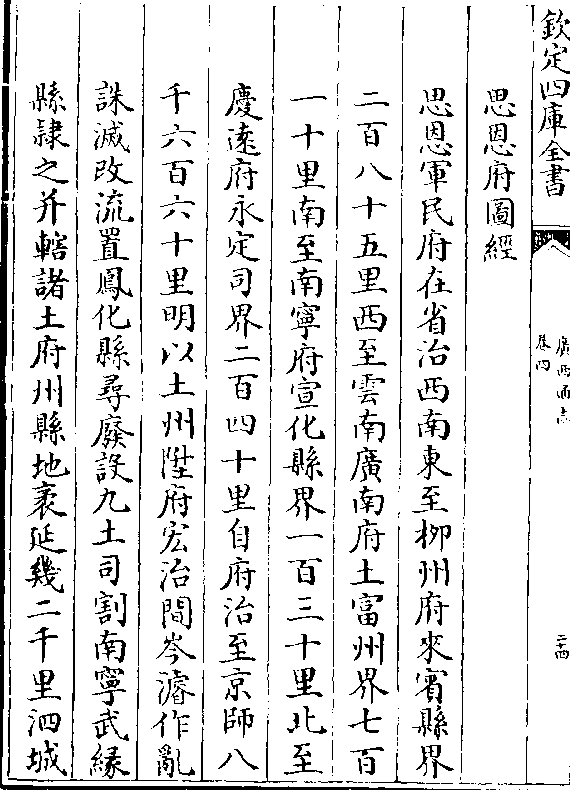 欽定四庫全書
廣西通志
卷四
二十四
思恩府圖經
思恩軍民府在省治西南東至柳州府來賓縣界
二百八十五里西至雲南廣南府土富州界七百
一十里南至南寧府宣化縣界一百三十里北至
慶遠府永定司界二百四十里自府治至京師八
千六百六十里明以土州陞府宏治間岑濬作亂
誅滅改流置鳳化縣尋廢設九土司割南寧武緣
縣隸之并轄諸土府州縣地袤延幾二千里泗城